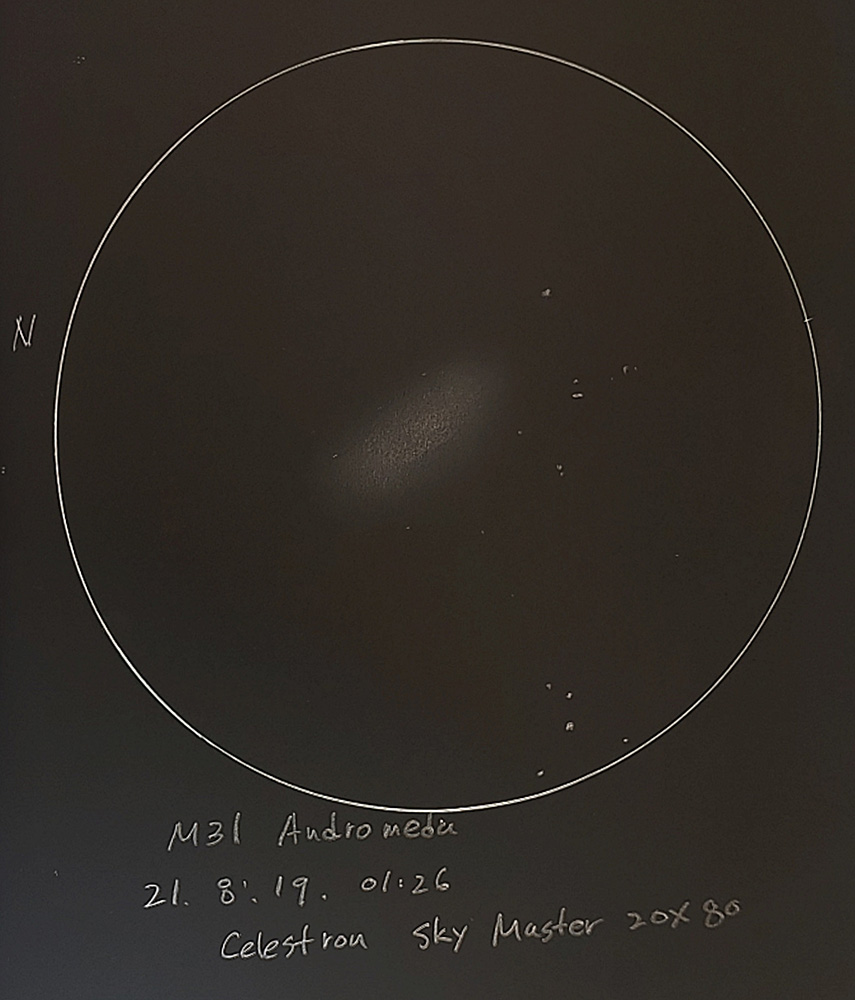 N
M31 Andromeda
21. 8. 19. 01:26
Celestron Sky Master 20X80